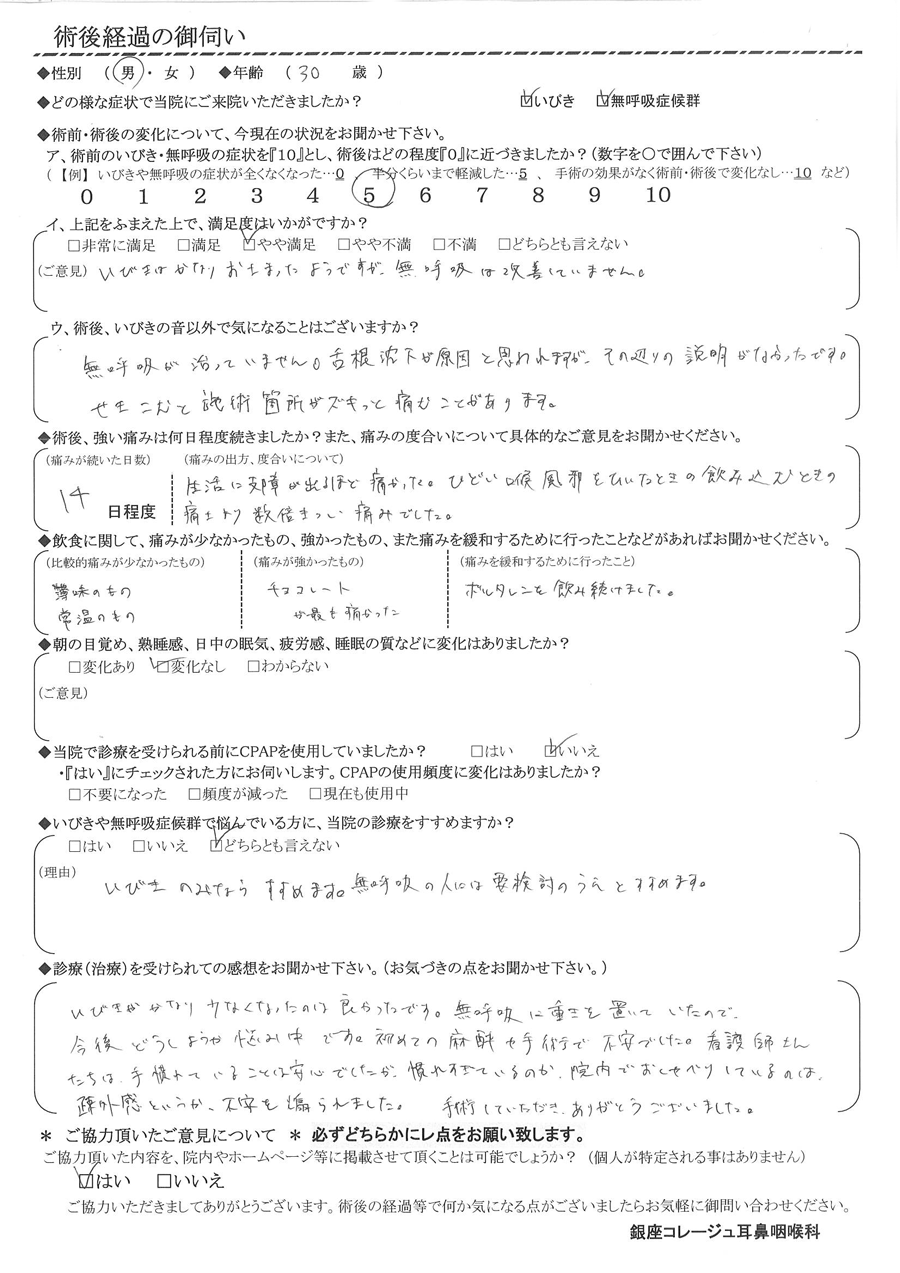 術後経過の御伺い
◆性別 （男・女） ◆年齢 （30 歳）
◆どの様な症状で当院にご来院いただきましたか？ ☑いびき ☑無呼吸症候群
◆術前・術後の変化について、今現在の状況をお聞かせ下さい。
ア、術前のいびき・無呼吸の症状を『10』とし、術後はどの程度『0』に近づきましたか？（数字を○で囲んで下さい）
（【例】いびきや無呼吸の症状が全くなくなった…0 、半分くらいまで軽減した…5 、手術の効果がなく術前・術後で変化なし…10 など）
0 1 2 3 4 5 6 7 8 9 10
イ、上記をふまえた上で、満足度はいかがですか？
□非常に満足 □満足 ☑やや満足 □やや不満 □不満 □どちらとも言えない
（ご意見） いびきはかなりおさまったようですが、無呼吸は改善していません。
ウ、術後、いびきの音以外で気になることはございますか？
無呼吸が治っていません。舌根沈下が原因と思われますが、その辺りの説明がなかったです。
せきこむと施術箇所がズキっと痛むことがあります。
◆術後、強い痛みは何日程度続きましたか？また、痛みの度合いについて具体的なご意見をお聞かせください。
（痛みが続いた日数） （痛みの出方、度合いについて）
14 日程度
生活に支障が出るほど痛かった。ひどい喉風邪をひいたときの飲み込むときの
痛みより数倍きつい痛みでした。
◆飲食に関して、痛みが少なかったもの、強かったもの、また痛みを緩和するために行ったことなどがあればお聞かせください。
（比較的痛みが少なかったもの） （痛みが強かったもの） （痛みを緩和するために行ったこと）
薄味のもの チョコレート ボルタレンを飲み続けました。
常温のもの が最も痛かった
◆朝の目覚め、熟睡感、日中の眠気、疲労感、睡眠の質などに変化はありましたか？
□変化あり ☑変化なし □わからない
（ご意見）
◆当院で診療を受けられる前にCPAPを使用していましたか？ □はい ☑いいえ
・『はい』にチェックされた方にお伺いします。CPAPの使用頻度に変化はありましたか？
□不要になった □頻度が減った □現在も使用中
◆いびきや無呼吸症候群で悩んでいる方に、当院の診療をすすめますか？
□はい □いいえ ☑どちらとも言えない
（理由） いびきのみならすすめます。無呼吸の人には要検討のうえとすすめます。
◆診療（治療）を受けられての感想をお聞かせ下さい。（お気づきの点をお聞かせ下さい。）
いびきがかなり少なくなったのは良かったです。無呼吸に重きを置いていたので、
今後どうしようか悩み中です。初めての麻酔や手術で不安でした。看護師さん
たちは、手慣れていることは安心でしたが、慣れすぎているのか、院内でおしゃべりしているのは、
疎外感というか、不安を煽られました。 手術していただき、ありがとうございました。
＊ ご協力頂いたご意見について ＊ 必ずどちらかにレ点をお願い致します。
ご協力頂いた内容を、院内やホームページ等に掲載させて頂くことは可能でしょうか？（個人が特定される事はありません）
☑はい □いいえ
ご協力いただきましてありがとうございます。術後の経過等で何か気になる点がございましたらお気軽に御問い合わせください。
銀座コレージュ耳鼻咽喉科